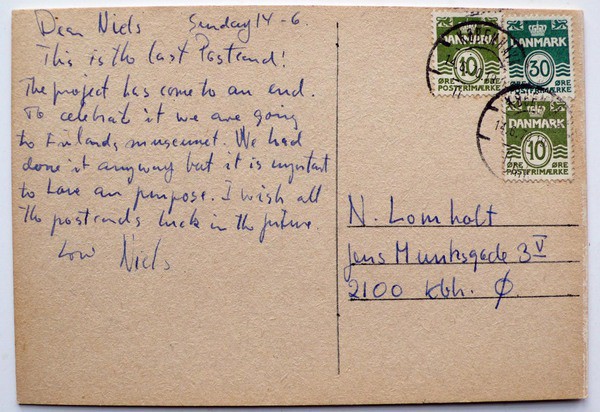 Dear Niels Sunday 14-6.
This is the last Postcard!
The project has come to an end.
To celebrate it we are going
to Finlands museumet. We had
done it anyway but it is important
to have an purpose. I wish all
the postcards luck in the future.
Love Niels
10
DANMARK
ØRE ØRE
POSTFRIMÆRKE
DANMARK
30
ØRE ØRE
POSTFRIMÆRKE
DANMARK
10
ØRE ØRE
POSTFRIMÆRKE
N. Lomholt
Jens Munksgade 3 V
2100 Kbh. Ø.